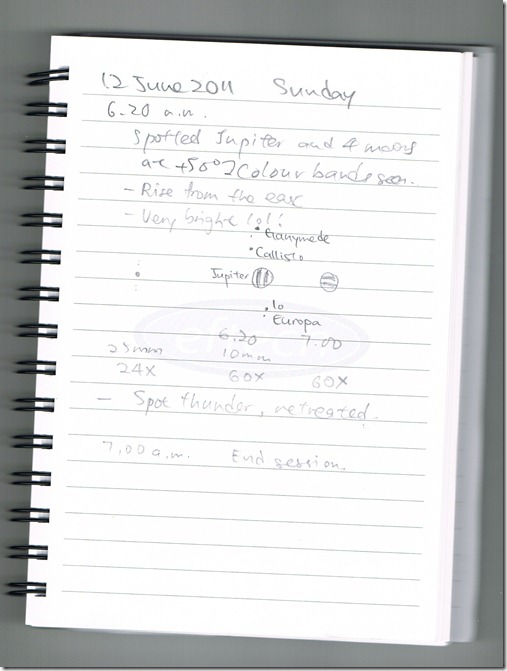 12 June 2011 Sunday
6.20 a.m.
Spotted Jupiter and 4 moons
at +50° 2 Colour bands seen.
- Rise from the eas
- Very bright lol!
Ganymede
Callisto
Jupiter
Io
Europa
6.20 7.00
25mm 10mm
24X 60X 60X
- Spot thunder, retreated.
7.00 a.m. End session.